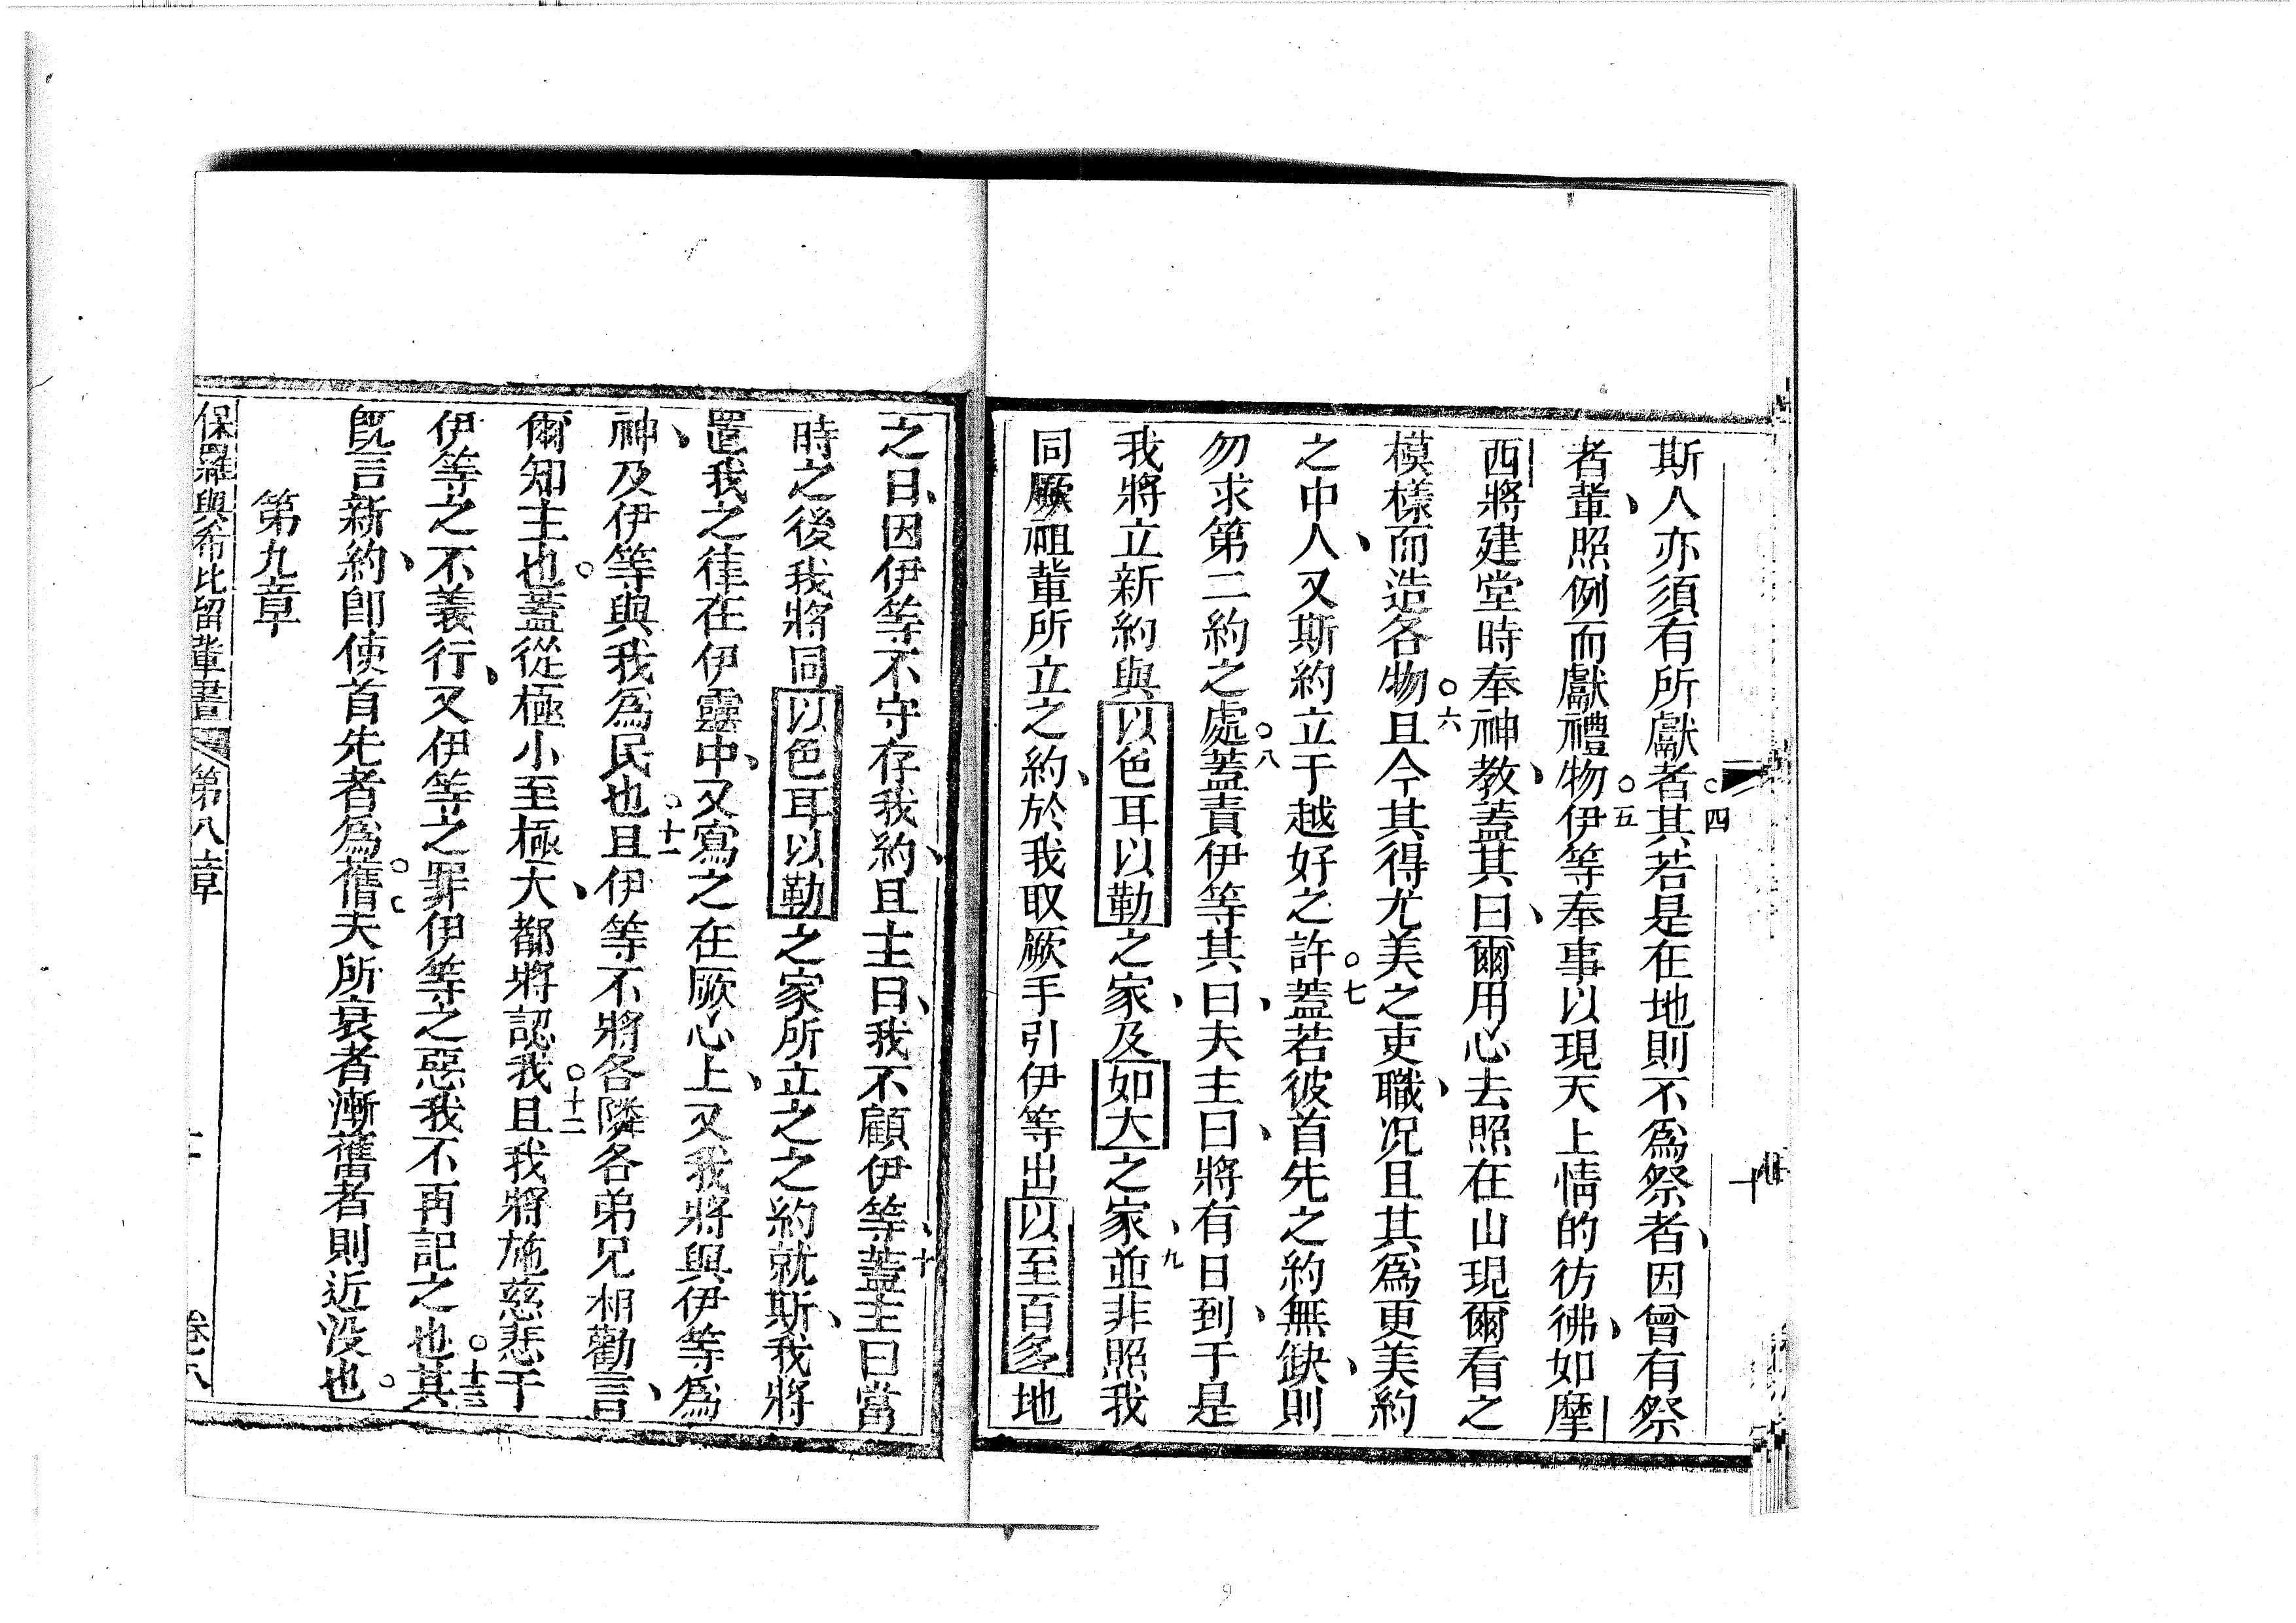 斯人亦須有所獻者。四其若是在地則不爲祭者、因曾有祭
者輩、照例而獻禮物。五伊等奉事以現天上情的彷彿、如摩
西將建堂時奉神教、蓋其曰、爾用心去照在山現爾看之
模樣而造各物。六且今其得尤美之吏職、况且其爲更美約
之中人、又斯約立于越好之許。七蓋若彼首先之約無缺、則
勿求第二約之處。八蓋責伊等其曰、夫主曰、將有日到、于是
我將立新約與以色耳以勒之家、及如大之家、九並非照我
同厥祖輩所立之約、於我取厥手引伊等出以至百多地
之日、因伊等不守存我約、且主曰、我不顧伊等、十蓋主曰當
時之後我將同以色耳以勒之家所立之之約就斯、我將
置我之律在伊靈中、又寫之在厥心上、又我將與伊等爲
神、及伊等與我爲民也。十一且伊等不將各隣各弟兄相勸言、
爾知主也。蓋從極小至極大、都將認我。十二且我將施慈悲于
伊等之不義行、又伊等之罪伊等之惡我不再記之也。十三其
既言新約、卽使首先者爲舊。夫所衰者漸舊者則近没也。
第九章
保羅與希比留輩書 第八章 卷八